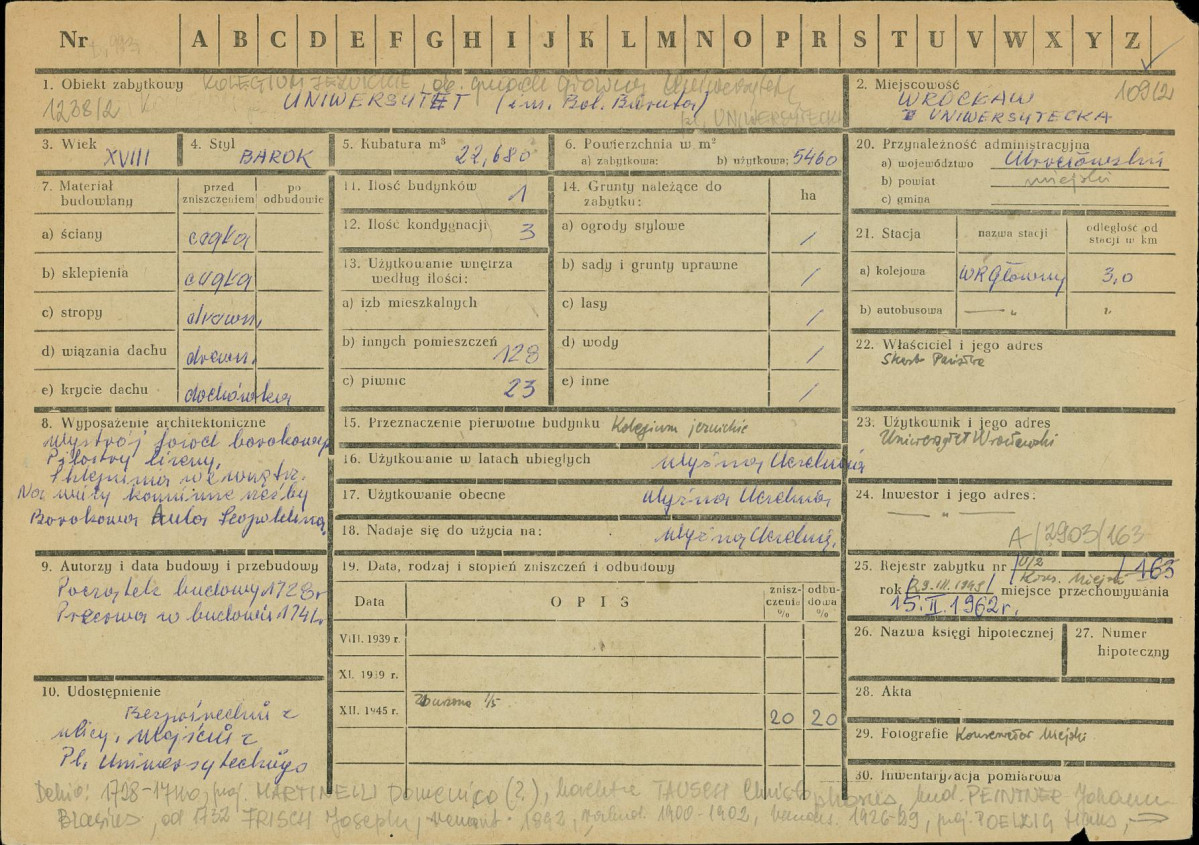 Nr A B C D E F G H I J K L M N O P R S T U V W X Y Z
1. Obiekt zabytkowy KOLEGIUM JEZUICKIE, ob. gmach główny Uniwersytetu
1238/2 UNIWERSYTET (im. Bol. Bieruta)
pl. UNIWERSYTECKI
2. Miejscowość 109/2
WROCŁAW
UNIWERSYTECKA
3. Wiek XVIII
4. Styl BAROK
5. Kubatura m³ 22,680
6. Powierzchnia w m²
a) zabytkowa: b) użytkowa: 5460
20. Przynależność administracyjna
a) województwo Wrocławskie
b) powiat miejski
c) gmina
7. Materiał budowlany
przed zniszczeniem
po odbudowie
a) ściany cegła
b) sklepienia cegła
c) stropy drewn.
d) wiązania dachu drewn.
e) krycie dachu dachówka
11. Ilość budynków 1
12. Ilość kondygnacji 3
13. Użytkowanie wnętrza według ilości:
a) izb mieszkalnych
b) innych pomieszczeń 128
c) piwnic 23
14. Grunty należące do zabytku: ha
a) ogrody stylowe /
b) sady i grunty uprawne /
c) lasy /
d) wody /
e) inne /
21. Stacja
nazwa stacji
odległość od stacji w km
a) kolejowa WR Główny 3,0
b) autobusowa — „ „
22. Właściciel i jego adres
Skarb Państwa
8. Wyposażenie architektoniczne
Wystrój fasad barokowy
Pilastry lizeny,
Sklepienia wewnątrz.
Barokowa Aula Leopoldina,
15. Przeznaczenie pierwotne budynku Kolegium jezuickie
16. Użytkowanie w latach ubiegłych Wyższa Uczelnia
17. Użytkowanie obecne Wyższa Uczelnia
18. Nadaje się do użycia na: Wyższą Uczelnię,
23. Użytkownik i jego adres
Uniwersytet Wrocławski
24. Inwestor i jego adres:
— „ —
A/2903/163
9. Autorzy i data budowy i przebudowy
Początek budowy 1728r
Przerwa w budowie 1741r.
19. Data, rodzaj i stopień zniszczeń i odbudowy
Data OPIS zniszczenie % odbudowa %
VIII. 1939 r.
XI. 1939 r.
XII. 1945 r. Zburzona 1/5 20 20
25. Rejestr zabytku nr Kons. Miejski 163
rok miejsce przechowywania
15.II.1962r.
26. Nazwa księgi hipotecznej
27. Numer hipoteczny
28. Akta
29. Fotografie Konserwator Miejski
30. Inwentaryzacja pomiarowa
10. Udostępnienie
Bezpośrednie z
ulicy, Wejście z
Pl. Uniwersyteckiego
Dehio: 1728-1740, proj. MARTINELLI Domenico (?), TAUSCH Christophorus, bud. PEINTNER Johann
Blasius, od 1732 FRISCH Joseph, remont. 1892, przebud. 1900-1902, 1926-29, proj. POELZIG Hans, →